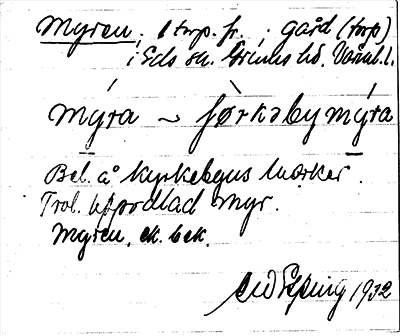 Myren, 1 torp. fr., gård (torp)
i Eds sn. Grums hd. Värml. l.
mýra ~ ſǫ̀rkəbymýra
Bel. å Kyrkebyns marker.
Trol. uppodlad myr.
Myren. ek. bek.
1932